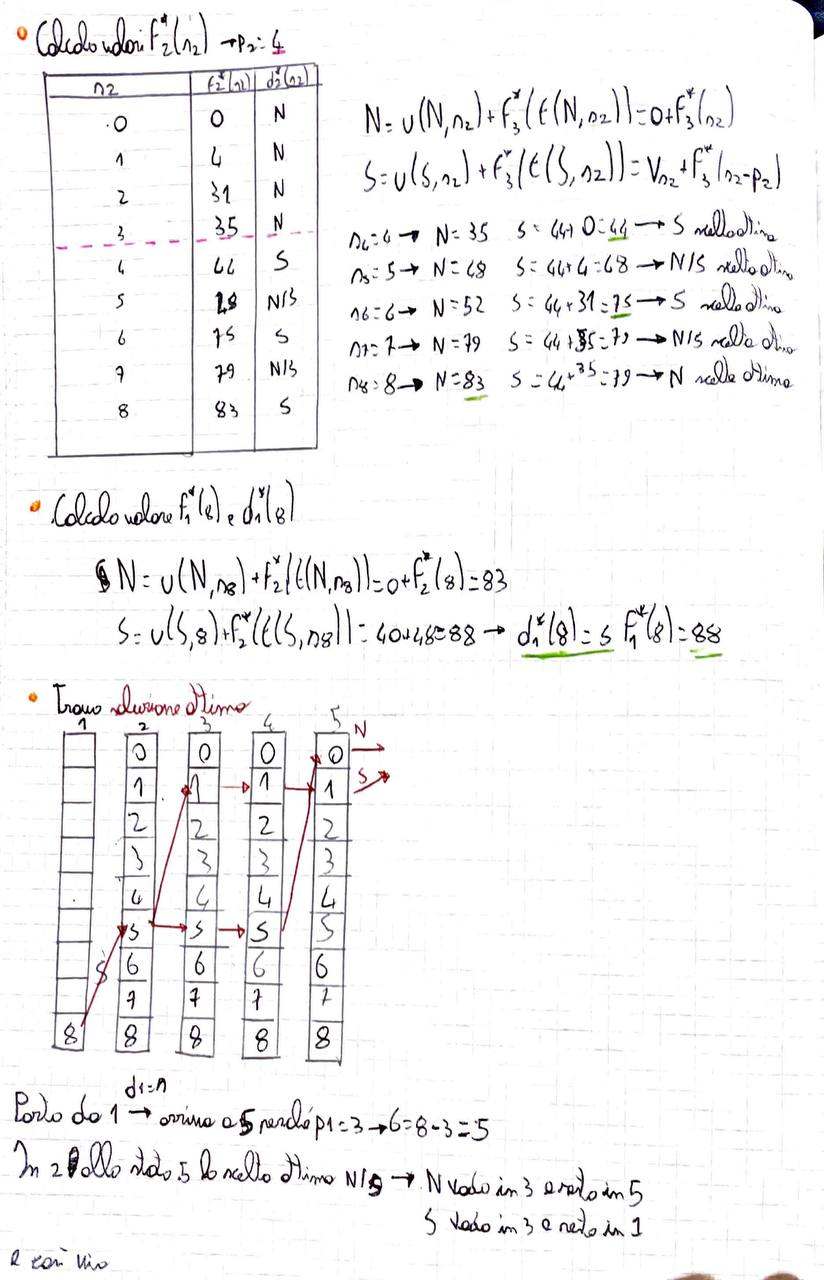 • Calcolo valori F₂*(n₂) → p₂=4
n2 F₂*(n2) d₂*(n2)
0 0 N
1 4 N
2 31 N
3 35 N
4 44 S
5 48 N/S
6 75 S
7 79 N/S
8 83 S
N= u(N,n₂)+F₃*(t(N,n₂))=0+F₃*(n₂)
S=u(S,n₂)+F₃*(t(S,n₂))=Vn₂+F₃*(n₂-p₂)
n4=4 → N=35 S=44+0=44 → S scelta ottima
n5=5 → N=48 S=44+4=48 → N/S scelta ottima
n6=6 → N=52 S=44+31=75 → S scelta ottima
n7=7 → N=79 S=44+35=79 → N/S scelta ottima
n8=8 → N=83 S=44+35=79 → N scelta ottima
• Calcolo valore F₁*(8) e d₁*(8)
N= u(N,n8)+F₂*(t(N,n8))=0+F₂*(8)=83
S=u(S,8)+F₂*(t(S,n8))=40+48=88 → d₁*(8)=S F₁*(8)=88
• Trovo soluzione ottima
1 2 3 4 5 N
0 0 0 0
1 1 1 1 S
2 2 2 2
3 3 3 3
4 4 4 4
5 5 5 5
S 6 6 6 6
7 7 7 7
8 8 8 8 8
d1=n
Parto da 1 → arrivo a 5 perché p1=3 → 6=8-3=5
In 2 allo stato 5 la scelta ottima N/S → N vado in 3 e resto in 5
S vado in 3 e resto in 1
e così via